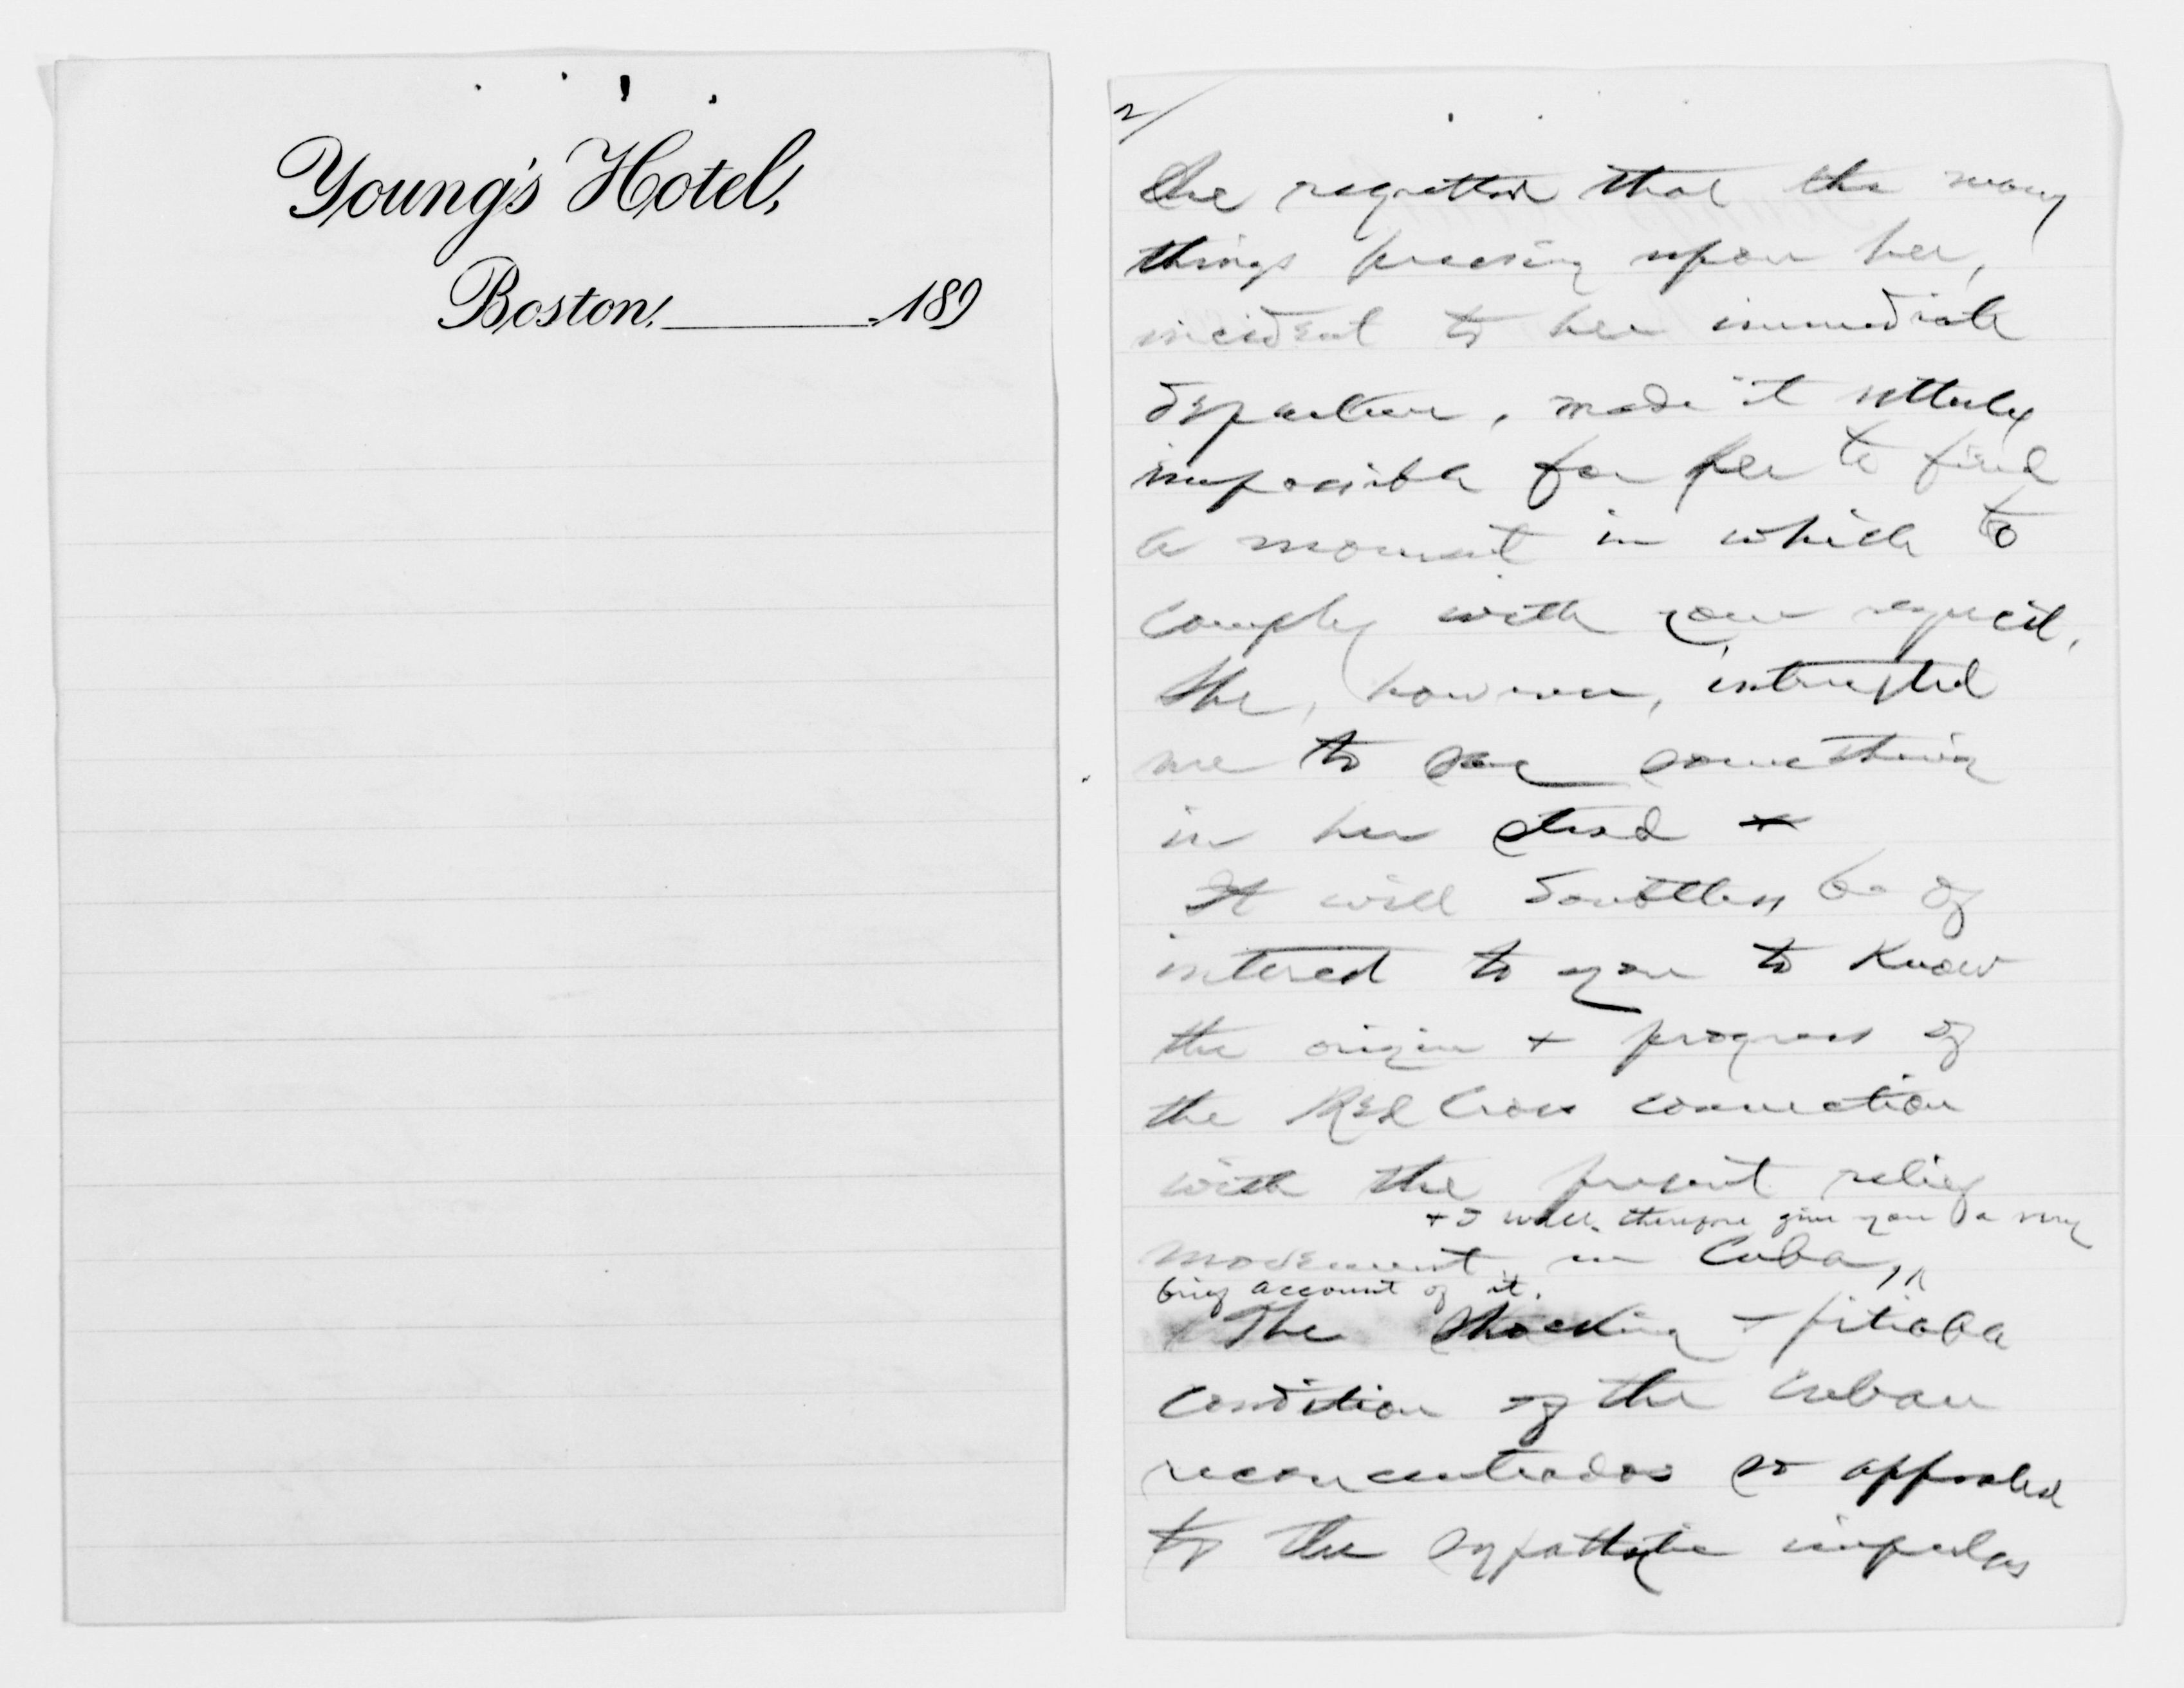 Young's Hotel,
Boston, 189
2/
She regretted that the many
things pressing upon her,
incident to her immediate
departure, made it utterly
impossible for her to find
a moment in which to
comply with your request.
She, however, intrusted
me to say something
in her stead
It will doubtless be of
interest to you to know
the origin + progress of
the Red Cross connection
with the present relief
+ I will therefore give you a very
movement in Cuba,
brief account of it.
The shocking + pitiable
condition of the Cuban
reconcentrados so appealed
to the sypathetic impulses